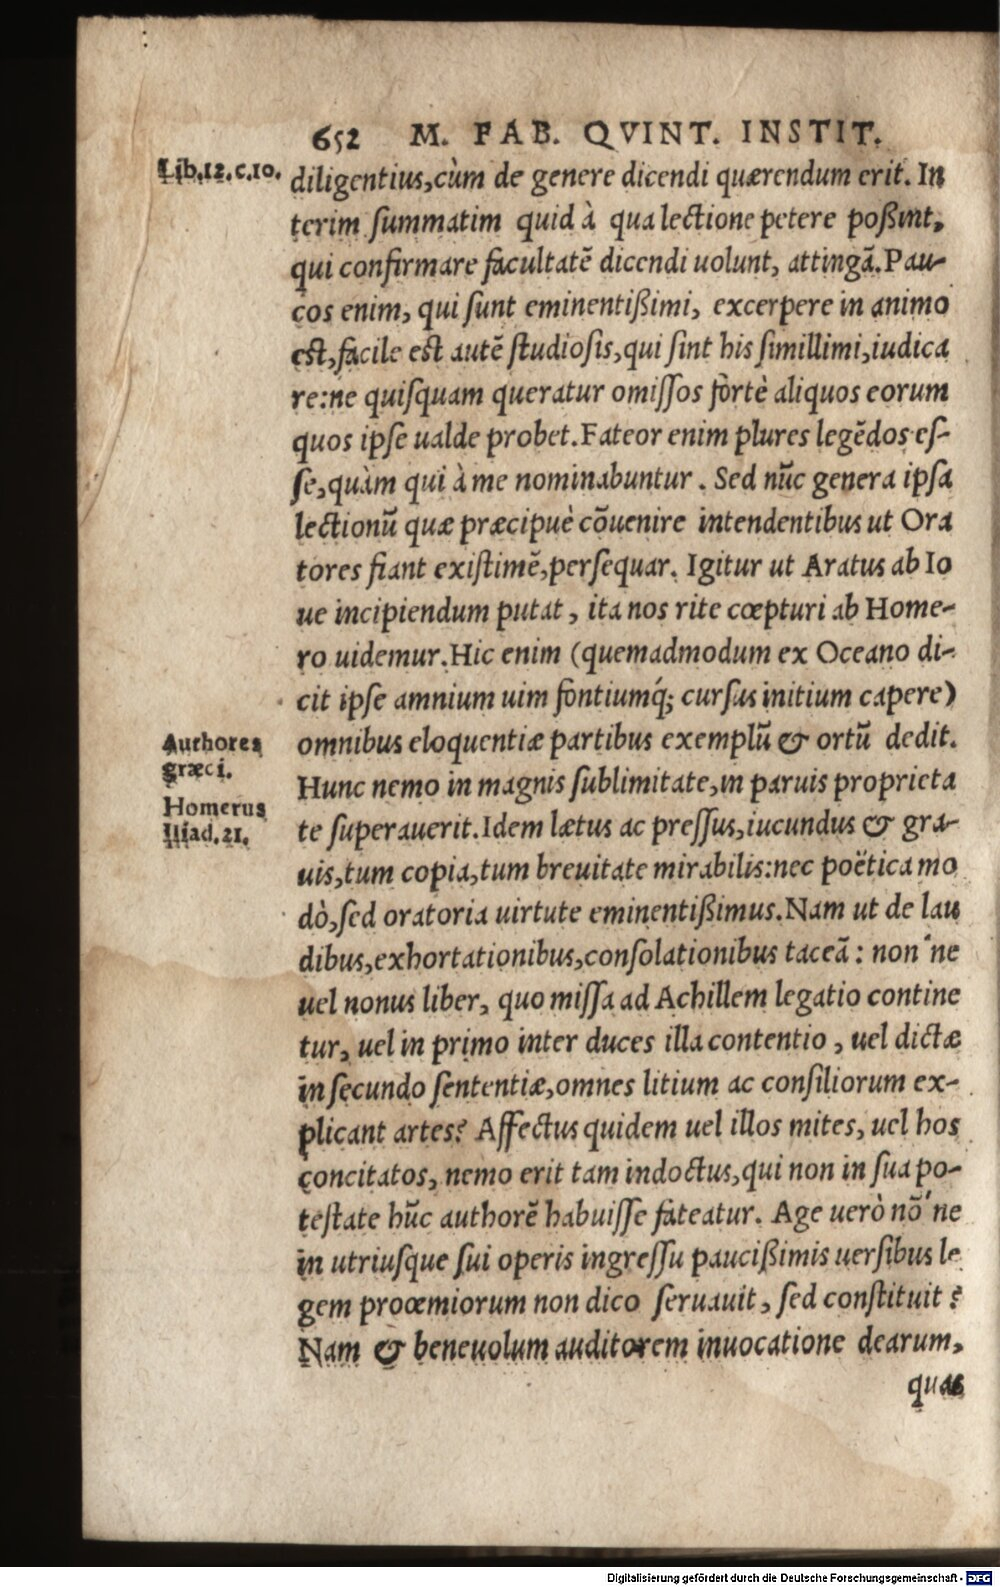 652 M. FAB. QVINT. INSTIT.
Lib.12.c.10.
diligentius,cùm de genere dicendi quærendum erit. In
terim ſummatim quid à qua lectione petere poßint,
qui confirmare facultatē dicendi uolunt, attingā.Pau-
cos enim, qui ſunt eminentißimi, excerpere in animo
est,facile est autē ſtudioſis,qui ſint his ſimillimi,iudica
re:ne quiſquam queratur omiſſos fortè aliquos eorum
quos ipſe ualde probet.Fateor enim plures legēdos eſ-
ſe,quàm qui à me nominabuntur. Sed nūc genera ipſa
lectionū quæ præcipuè cōuenire intendentibus ut Ora
tores fiant exiſtimē,perſequar. Igitur ut Aratus ab Io
ue incipiendum putat, ita nos rite cœpturi ab Home-
ro uidemur.Hic enim (quemadmodum ex Oceano di-
cit ipſe amnium uim fontiumq́; curſus initium capere)
Authores
græci.
omnibus eloquentiæ partibus exemplū & ortū dedit.
Hunc nemo in magnis ſublimitate,in paruis proprieta
Homerus
Iliad.21.
te ſuperauerit.Idem lætus ac preſſus,iucundus & gra-
uis,tum copia,tum breuitate mirabilis:nec poëtica mo
dò,ſed oratoria uirtute eminentißimus.Nam ut de lau
dibus,exhortationibus,conſolationibus taceā: non'ne
uel nonus liber, quo miſſa ad Achillem legatio contine
tur, uel in primo inter duces illa contentio, uel dictæ
in ſecundo ſententiæ,omnes litium ac conſiliorum ex-
plicant artes? Affectus quidem uel illos mites, uel hos
concitatos, nemo erit tam indoctus,qui non in ſua po-
teſtate hūc authorē habuiſſe fateatur. Age uerò nō'ne
in utriuſque ſui operis ingreſſu pauciſßimis uerſibus le
gem proœmiorum non dico ſeruauit, ſed conſtituit?
Nam & beneuolum auditorem inuocatione dearum,
quas
Digitalisierung gefördert durch die Deutsche Forschungsgemeinschaft - DFG